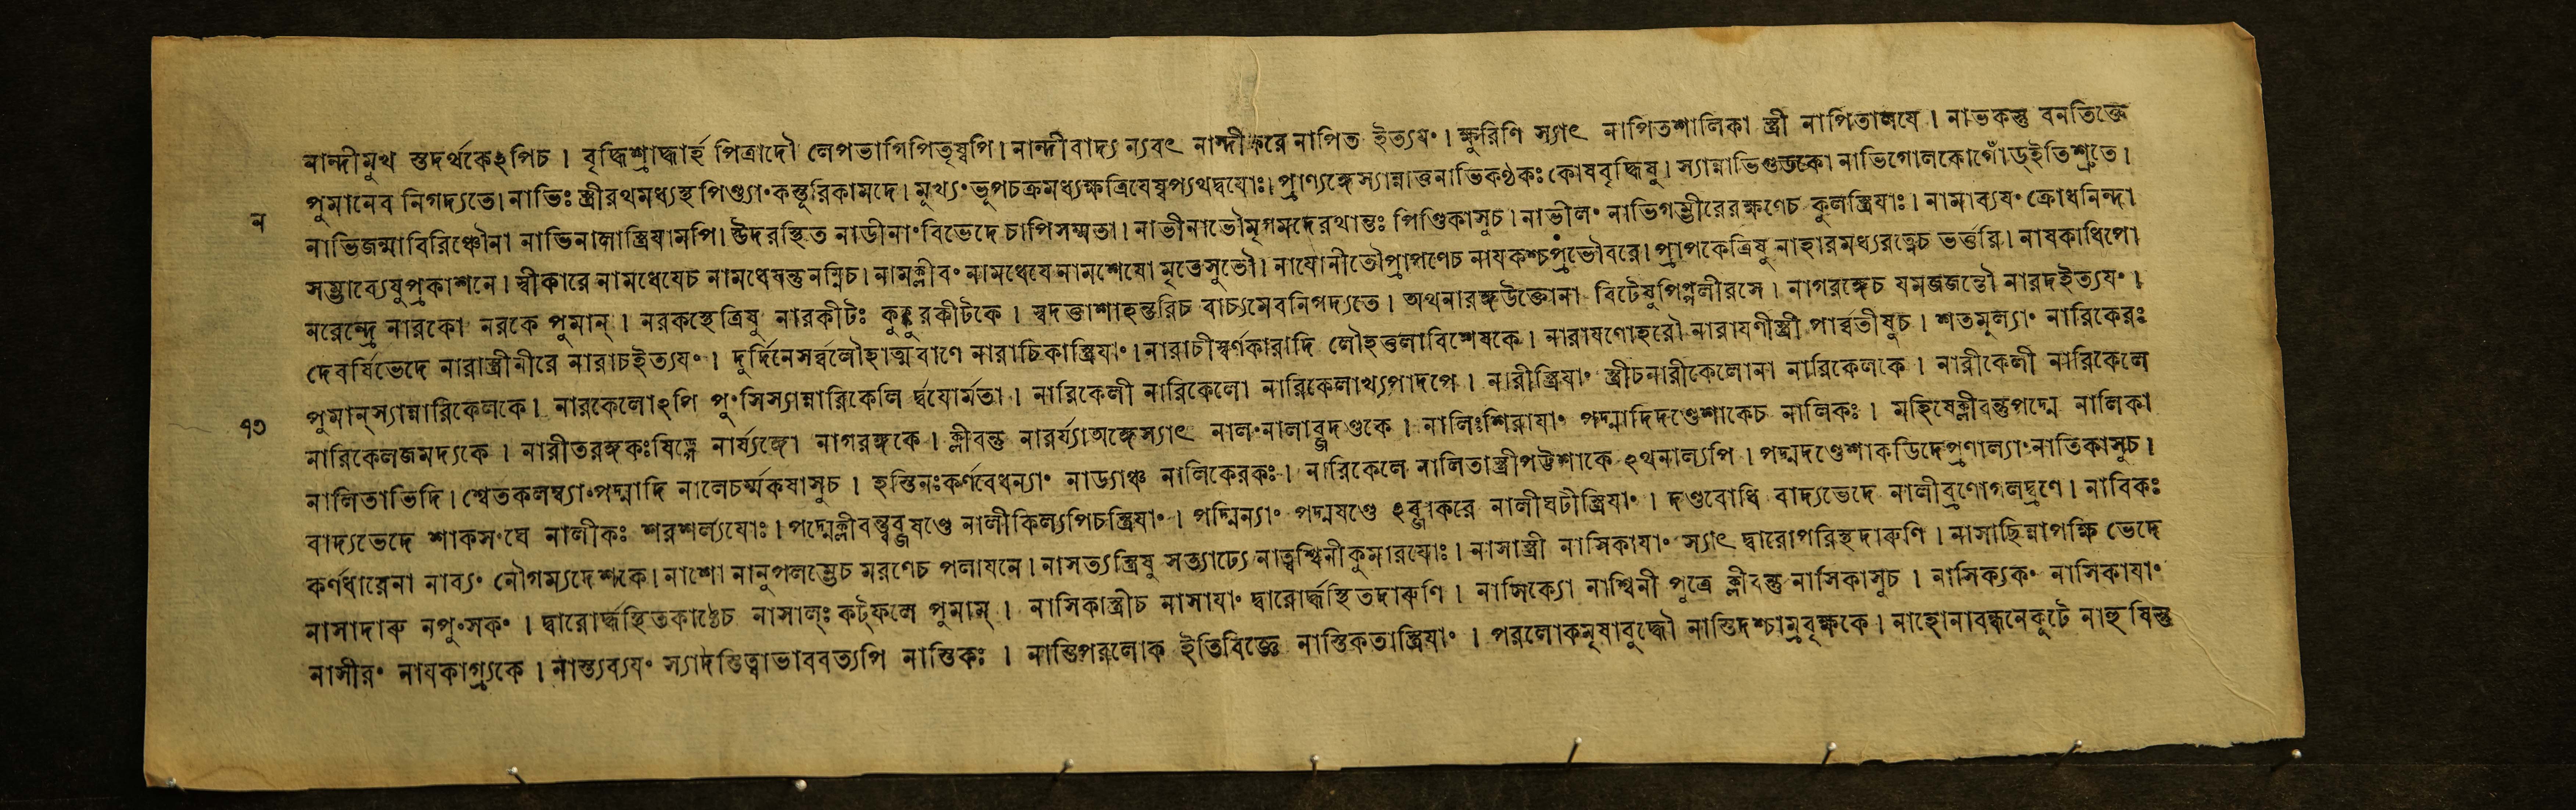 নান্দীমুখ স্তদর্থকেঽপিচ । বৃদ্ধিশ্রাদ্ধার্হ পিত্রাদৌ লেপভাগিপিতৃষ্বপি। নান্দীবাদ্য ন্যবৎ নান্দীকরে নাপিত ইত্যয়ং । ক্ষুরিণি স্যাৎ নাপিতশালিকা স্ত্রী নাপিতালয়ে । নাভকস্তু বনতিক্তে
পুমানেব নিগদ্যতে। নাভিঃ স্ত্রীরথমধ্যস্থ পিণ্ড্যাং কস্তূরিকামদে। মুখ্যং ভূপচক্রমধ্যক্ষত্রিয়েষ্বপ্যথদ্বয়োঃ। প্রাণ্যঙ্গেস্যান্নাত্তনাভিকণ্ঠকঃ কোষবৃদ্ধিষু। স্যান্নাভিগুডকো নাভিগোলকোগোঁড়ইতিশ্রুতে।
ন
নাভিজন্মাবিরিঞ্চৌনা নাভিনালাস্ত্রিয়ামপি। উদরস্থিত নাডীনাং বিভেদে চাপিসম্মতা। নাভীনাভৌমৃগমদেরথান্তঃ পিণ্ডিকাসুচ। নাভীলং নাভিগম্ভীরেরক্ষণেচ কুলস্ত্রিয়াঃ। নামাব্যয়ং ক্রোধনিন্দা
সম্ভাব্যেষুপ্রকাশনে। স্বীকারে নামধেয়েচ নামধেয়ন্তুনগ্নিচ। নামক্লীবং নামধেয়ে নামশেষো মৃতেসুতৌ। নাযোনীতৌপ্রাপণেচ নায়কশ্চপ্রভৌবরে। প্রাপকেত্রিষু নাহারমধ্যরত্নেচ ভর্ত্তরি। নায়কাধিপো
নরেন্দ্রে নারকো নরকে পুমান্ । নরকস্থেত্রিষু নারকীটঃ কুক্কুরকীটকে । স্বদত্তাশাহন্তরিচ বাচ্যমেবনিগদ্যতে । অথনারঙ্গউক্তোনা বিটেষুপিপ্পলীরসে । নাগরঙ্গেচ যমজজন্তৌ নারদইত্যয়ং ।
দেবর্ষিভেদে নারাস্ত্রীনীরে নারাচইত্যয়ং । দুর্দিনেসর্ব্বলৌহাত্মবাণে নারাচিকাস্ত্রিয়াং । নারাচীস্বর্ণকারাদি লৌহত্তুলাবিশেষকে । নারায়ণোহরৌ নারায়ণীস্ত্রী পার্ব্বতীষুচ । শতমুল্যাং নারিকেরঃ
পুমান্‌স্যান্নারিকেলকে। নারকেলোঽপি পুংসিস্যান্নারিকেলি র্দ্বয়োর্মতা । নারিকেলী নারিকেলো নারিকেলাখ্যপাদপে । নারীস্ত্রিয়াং স্ত্রীচনারীকেলোনা নারিকেলকে । নারীকেলী নারিকেলে
৭৩
নারিকেলজমদ্যকে । নারীতরঙ্গকঃষিড়্গে নার্য্যঙ্গো নাগরঙ্গকে । ক্লীবন্তু নারর্য্যাঅঙ্গেস্যাৎ নালংনালাব্জদণ্ডকে । নালিঃশিরায়াং পদ্মাদিদণ্ডেশাকেচ নালিকঃ । মহিষেক্লীবন্তুপদ্মে নালিকা
নালিতাভিদি। শ্বেতকলম্ব্যাংপদ্মাদি নালেচর্ম্মকষাসুচ । হস্তিনঃকর্ণবেধন্যাং নাড্যাঞ্চ নালিকেরকঃ। নারিকেলে নালিতাস্ত্রীপট্টশাকে ঽথনাল্যপি । পদ্মদণ্ডেশাকডিদেপ্রণাল্যাংনাতিকাসুচ।
বাদ্যভেদে শাকসংঘে নালীকঃ শরশল্যয়োঃ। পদ্মেক্লীবন্ত্বব্জষণ্ডে নালীকিন্যপিচস্ত্রিয়াং। পদ্মিন্যাং পদ্মষণ্ডে ঽব্জাকরে নালীঘটীস্ত্রিয়াং । দণ্ডবোধি বাদ্যভেদে নালীব্রণোগলদ্ব্রণে। নাবিকঃ
কর্ণধারেনা নাব্যং নৌগম্যদেশকে। নাশো নানুপলম্ভেচ মরণেচ পলায়নে। নাসত্যন্ত্রিষু সত্ত্যাঢ্যে নাত্বশ্বিনীকুমারয়োঃ। নাসাস্ত্রী নাসিকায়াং স্যাৎ দ্বারোপরিস্থদারুণি । নাসাছিন্নাপক্ষি ভেদে
নাসাদারু নপুংসকং । দ্বারোর্দ্ধস্থিতকাষ্ঠেচ নাসালুঃ কট্‌ফলে পুমান্ । নাসিকাস্ত্রীচ নাসায়াং দ্বারোর্দ্ধস্থিতদারুণি । নাসিক্যো নাশ্বিনী পুত্রে ক্লীবন্তু নাসিকাসুচ । নাসিক্যকং নাসিকায়াং
নাসীরং নায়কাগ্র্যকে । নাস্ত্যব্যয়ং স্যাদস্তিত্বাভাববত্যপি নাস্তিকঃ । নাস্তিপরলোক ইতিবিজ্ঞে নাস্তিকতাস্ত্রিয়াং । পরলোকমৃষাবুদ্ধৌ নাস্তিদশ্চাম্রবৃক্ষকে । নাহোনাবন্ধনেকূটে নাহুষিস্তু